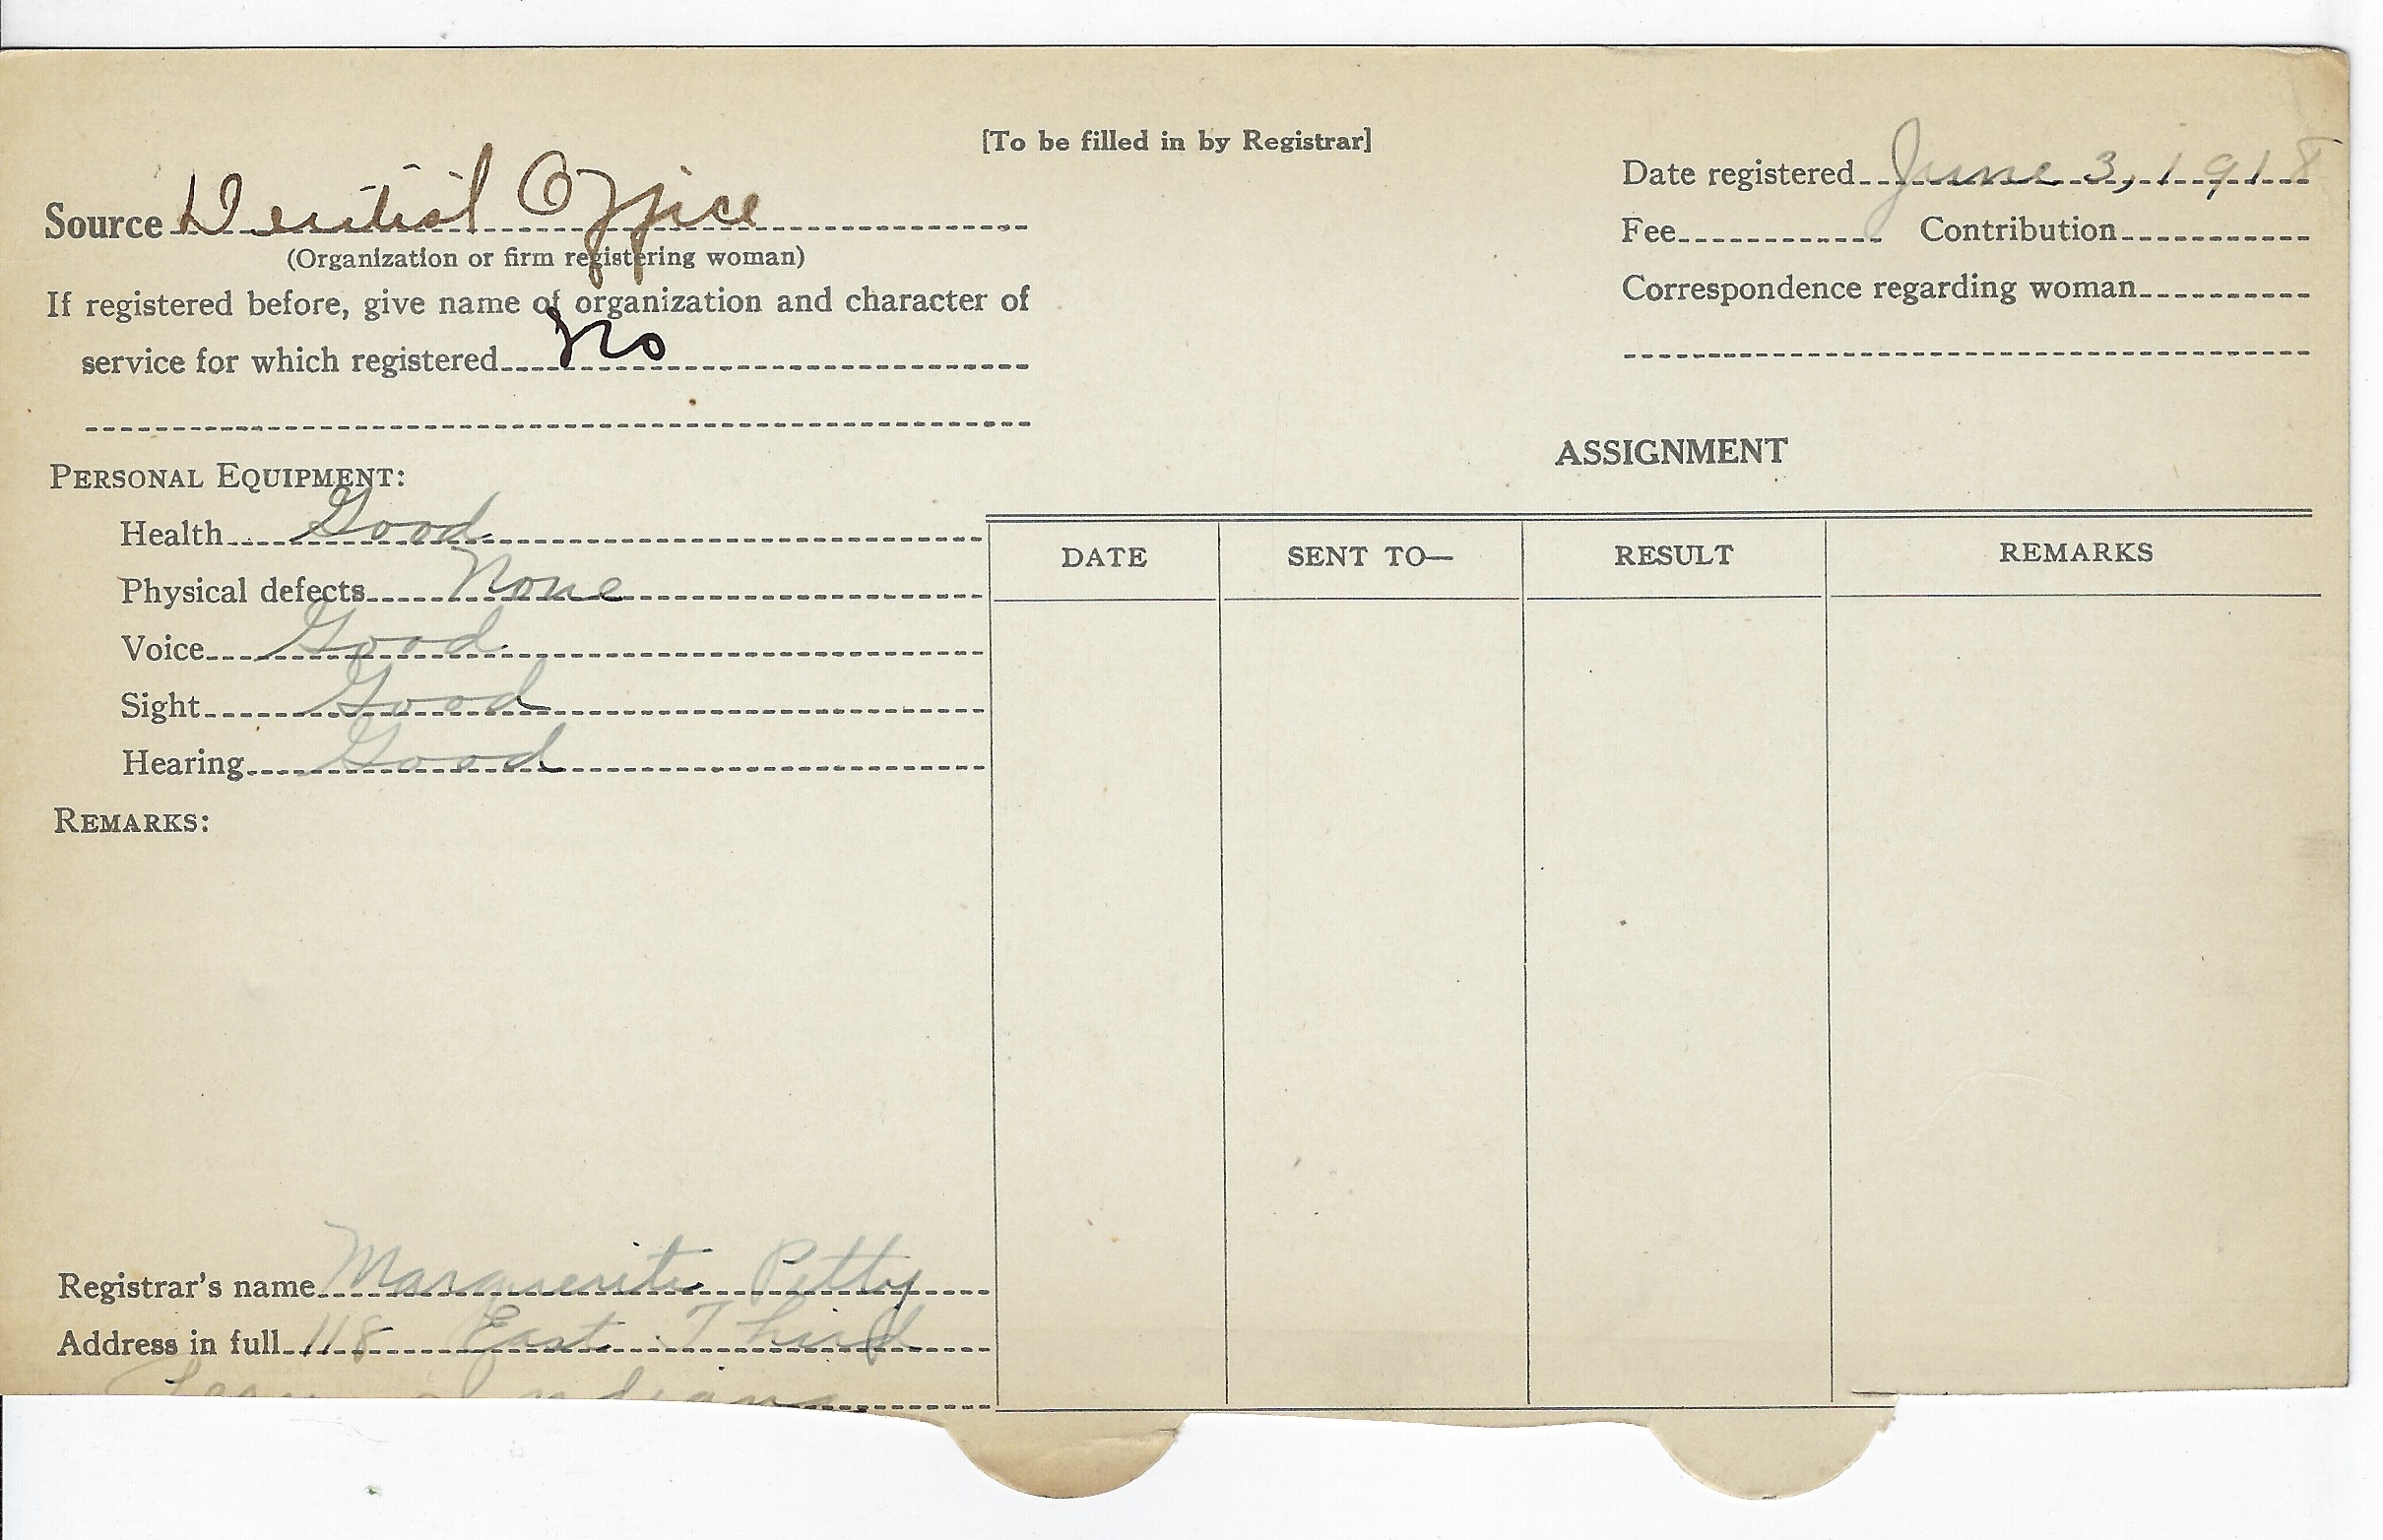 [To be filled in by Registrar]
Source Dential Office
(Organization or firm registering woman)
If registered before, give name of organization and character of
service for which registered No
Date registered June 3, 1918
Fee Contribution
Correspondence regarding woman
PERSONAL EQUIPMENT:
Health Good
Physical defects None
Voice Good
Sight Good
Hearing Good
REMARKS:
ASSIGNMENT
DATE SENT TO— RESULT REMARKS
Registrar's name Marguerite Petty
Address in full 118 East Third
Indiana